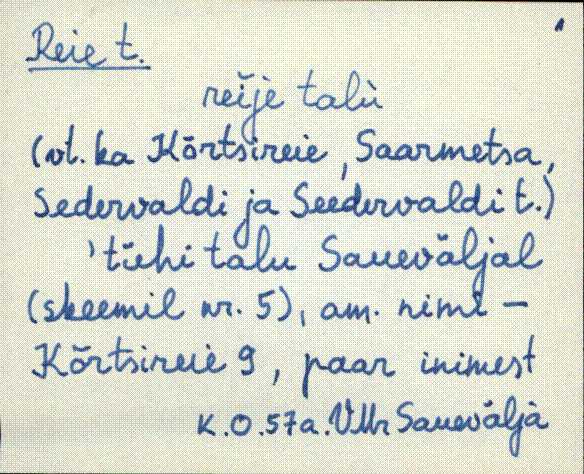 Reie t.
reije talù
(vt. ka Kõrtsireie, Saarmetsa,
Sedervaldi ja Seedervaldi t.)
'tühi talu Saueväljal
(skeemil nr. 5), am. nimi –
Kõrtsireie 9, paar inimest
K.O. 57a. VMr Sauevälja